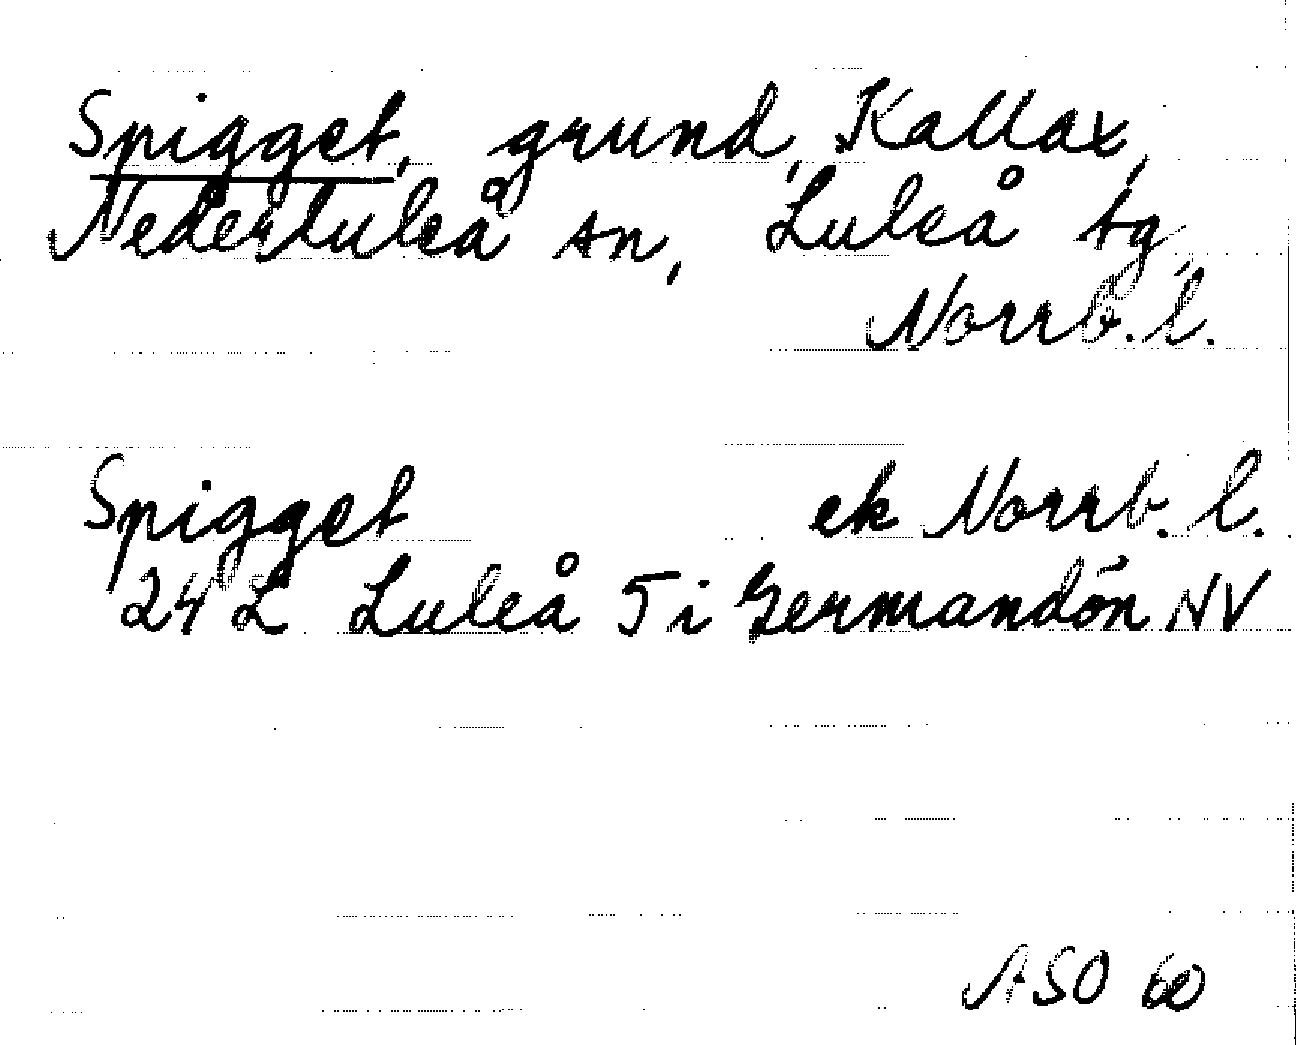 Spigget, grund, Kallax,
Nederluleå sn, Luleå tg,
Norrb. l.
Spigget ek Norrb. l.
24 L Luleå 5 i Germandön NV
ASO 60